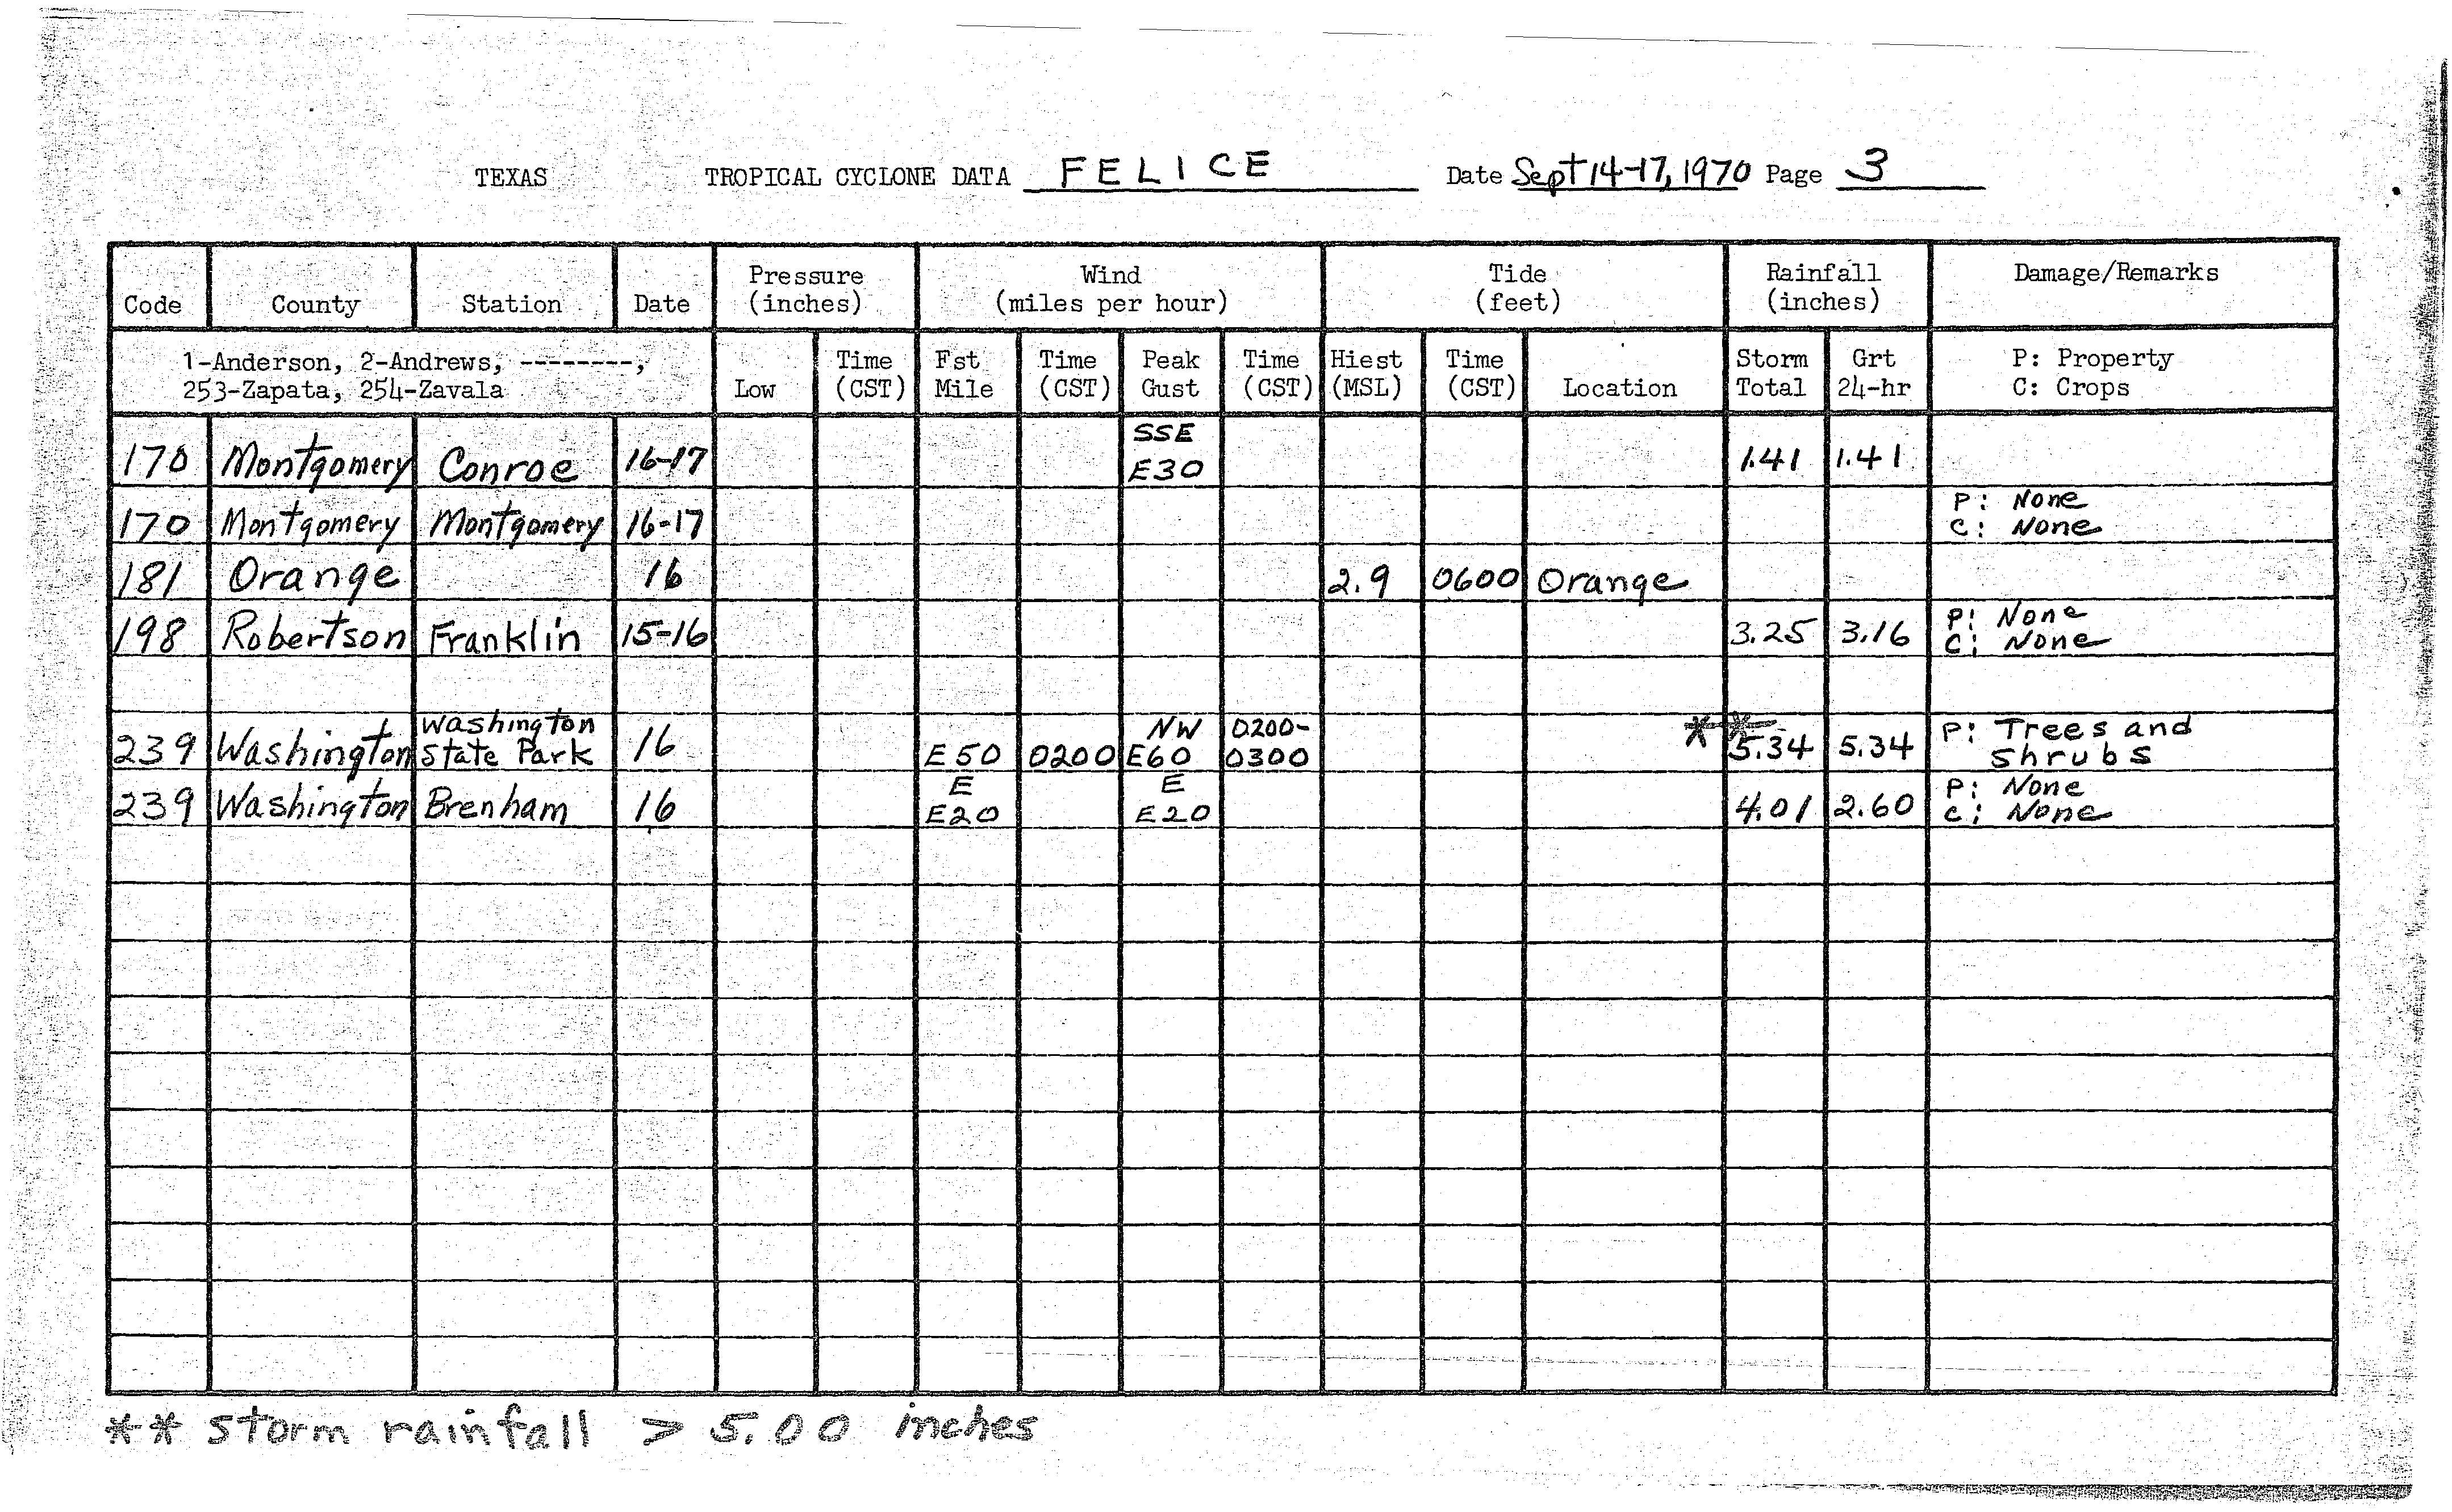 TEXAS TROPICAL CYCLONE DATA FELICE Date Sept 14-17, 1970 Page 3
Code County Station Date Pressure (inches) Wind (miles per hour) Tide (feet) Rainfall (inches) Damage/Remarks
1-Anderson, 2-Andrews, --------,
253-Zapata, 254-Zavala
Low Time (CST) Fst Mile Time (CST) Peak Gust Time (CST) Hiest (MSL) Time (CST) Location Storm Total Grt 24-hr P: Property C: Crops
170 Montgomery Conroe 16-17 SSE E30 1.41 1.41
170 Montgomery Montgomery 16-17 P: None C: None
181 Orange 16 2.9 0600 Orange
198 Robertson Franklin 15-16 3.25 3.16 P: None C: None
239 Washington Washington State Park 16 E50 0200 NW E60 0200-0300 ** 5.34 5.34 P: Trees and Shrubs
239 Washington Brenham 16 E E20 E E20 4.01 2.60 P: None C: None
** storm rainfall > 5.00 inches